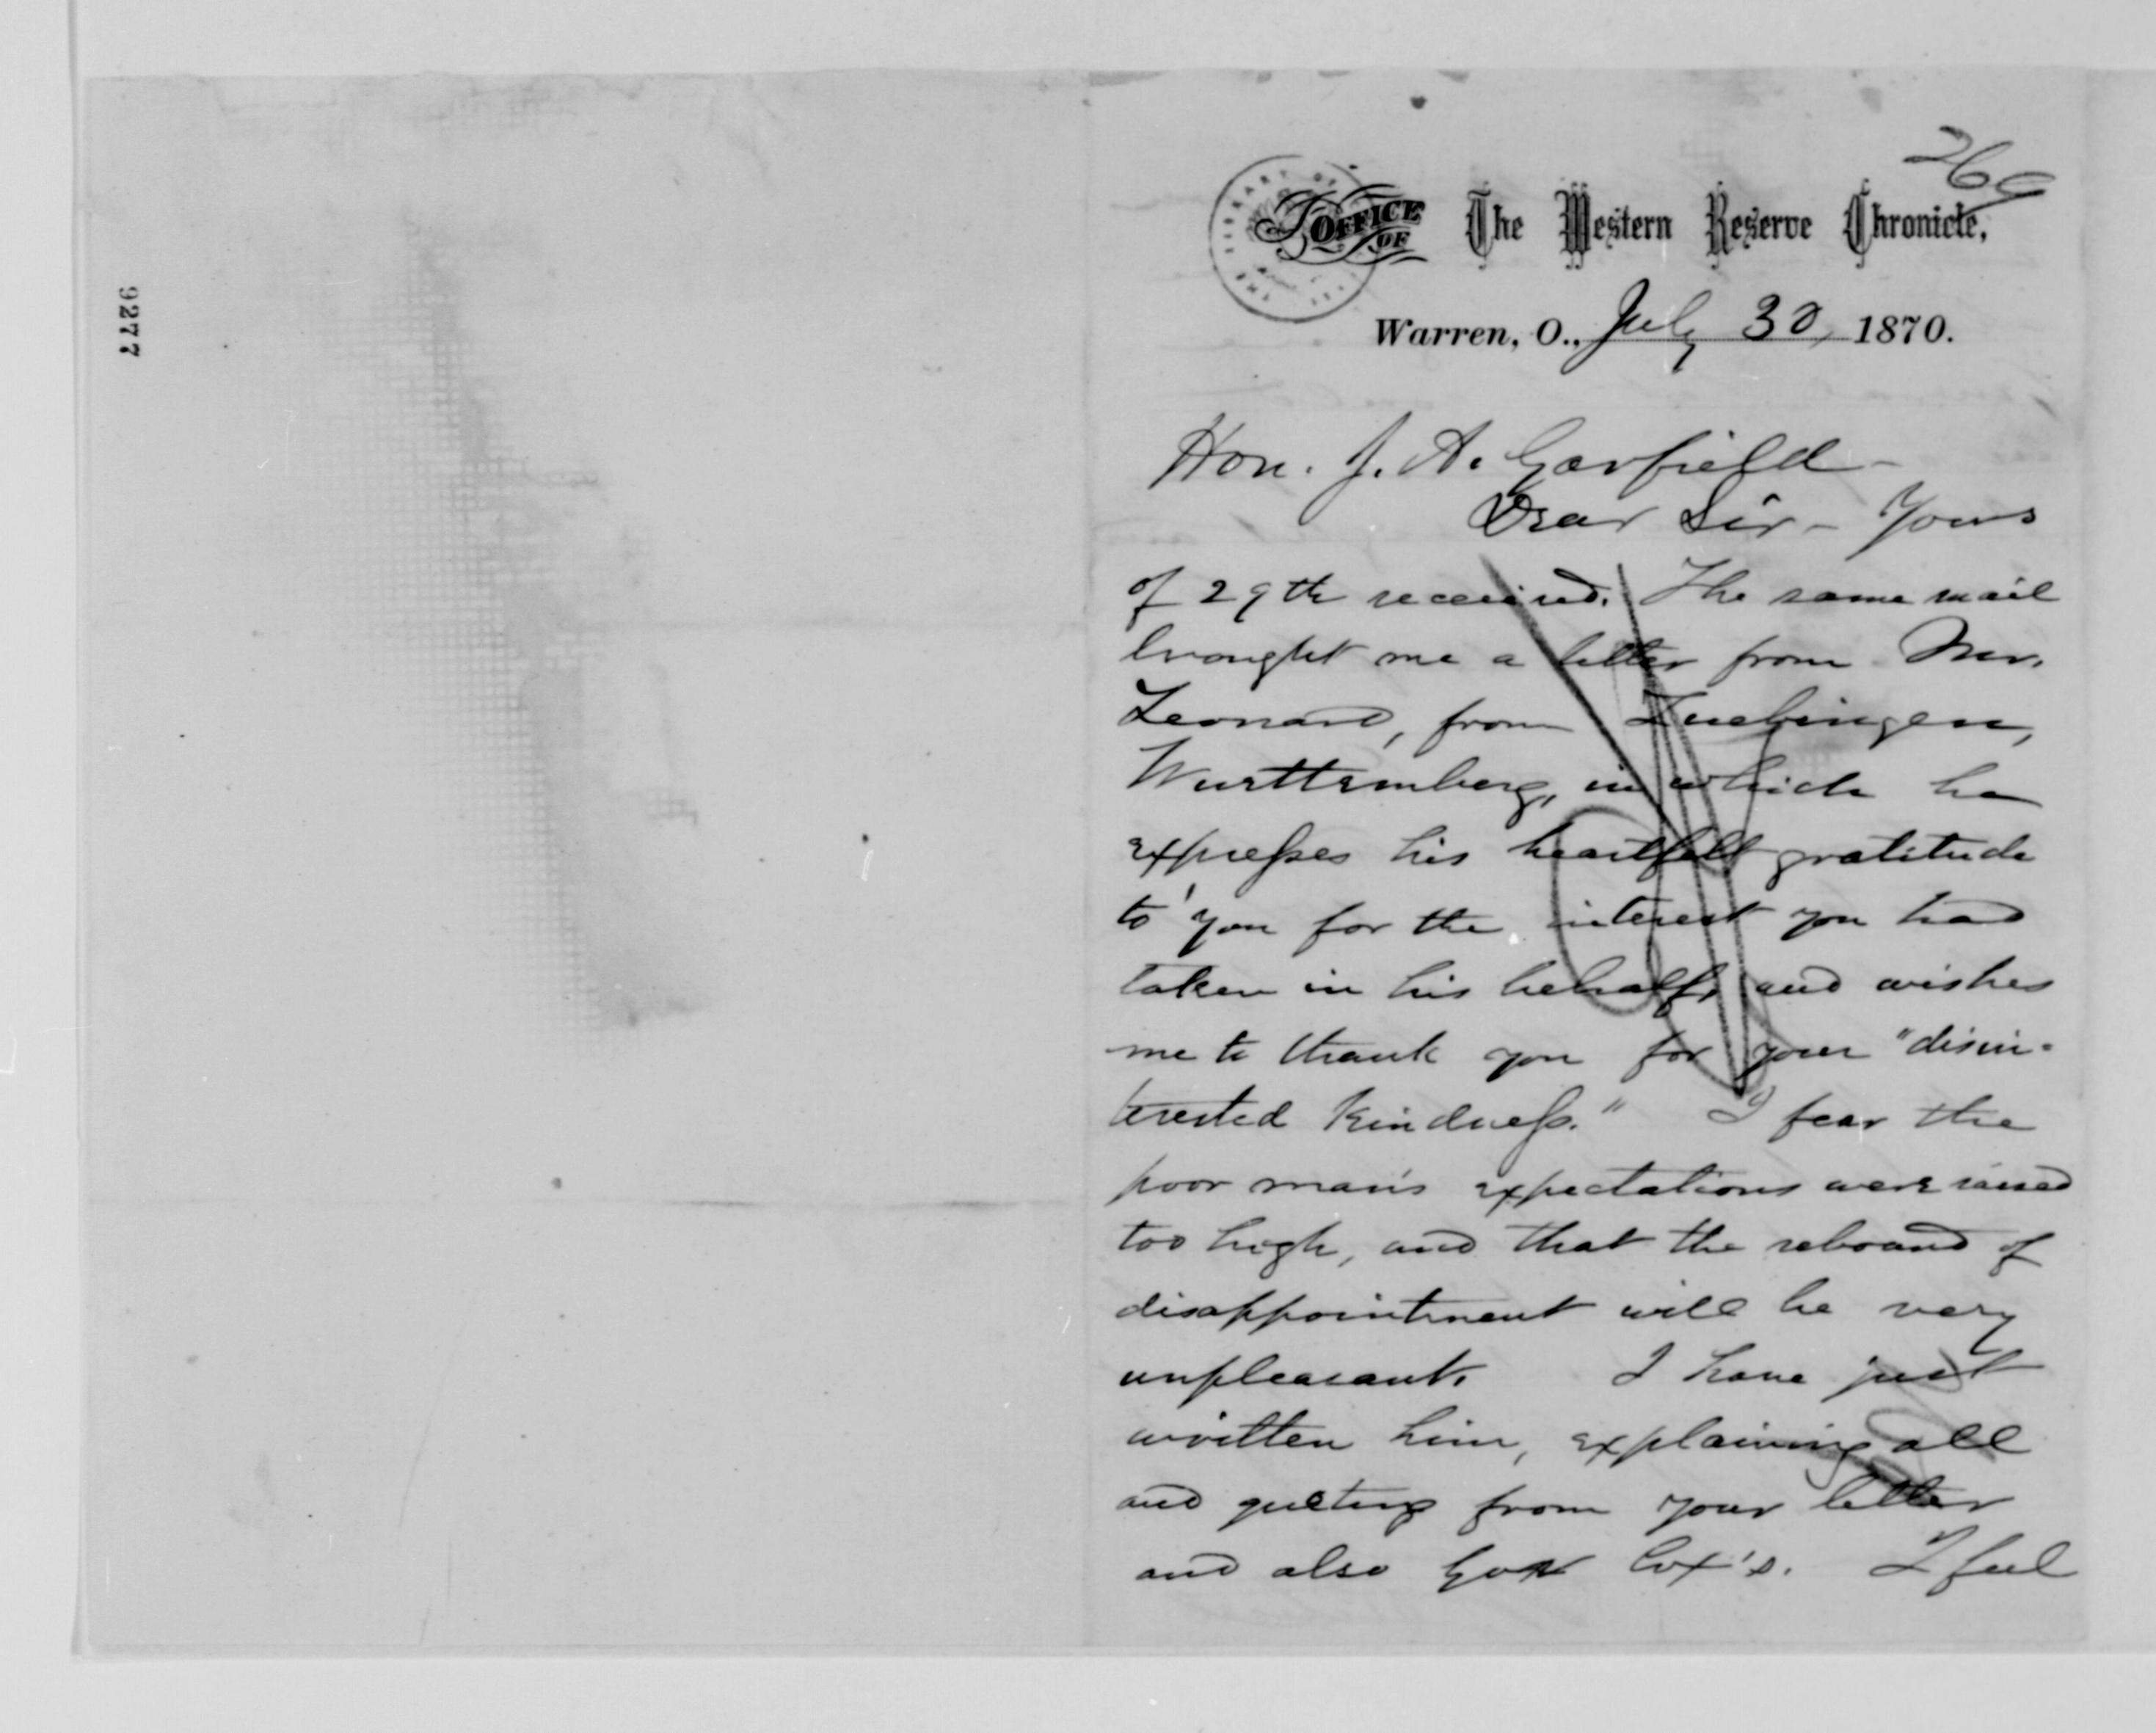 9277
269
OFFICE OF The Western Reserve Chronicle,
Warren, O., July 30, 1870.
Hon. J. A. Garfield -
Dear Sir - Yours
of 29th received. The same mail
brought me a letter from Mr.
Leonard, from Tuebingen,
Wurttemberg, in which he
expresses his heartfelt gratitude
to you for the interest you had
taken in his behalf, and wishes
me to thank you for your "disin-
terested kindness." I fear the
poor man's expectations were raised
too high, and that the rebound of
disappointment will be very
unpleasant. I have just
written him, explaining all
and quoting from your letter
and also Gov Cox's. I feel